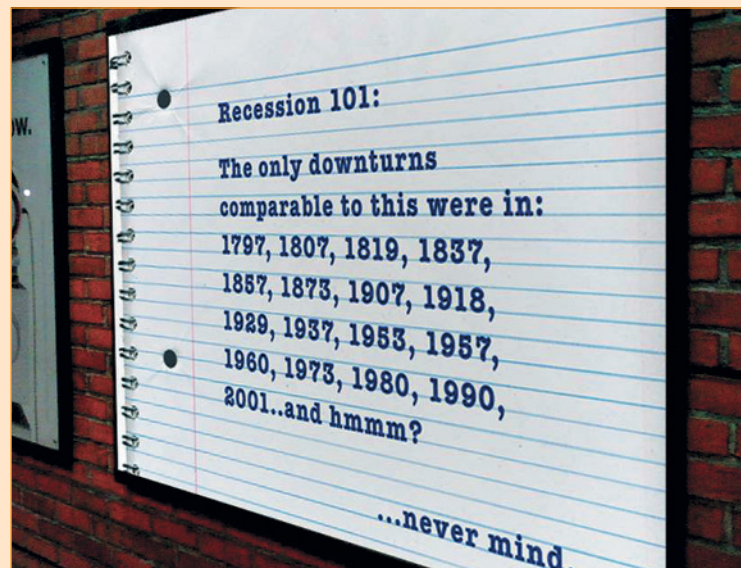 OW.
Recession 101:
The only downturns
comparable to this were in:
1797, 1807, 1819, 1837,
1857, 1873, 1907, 1918,
1929, 1937, 1953, 1957,
1960, 1973, 1980, 1990,
2001..and hmmm?
...never mind.